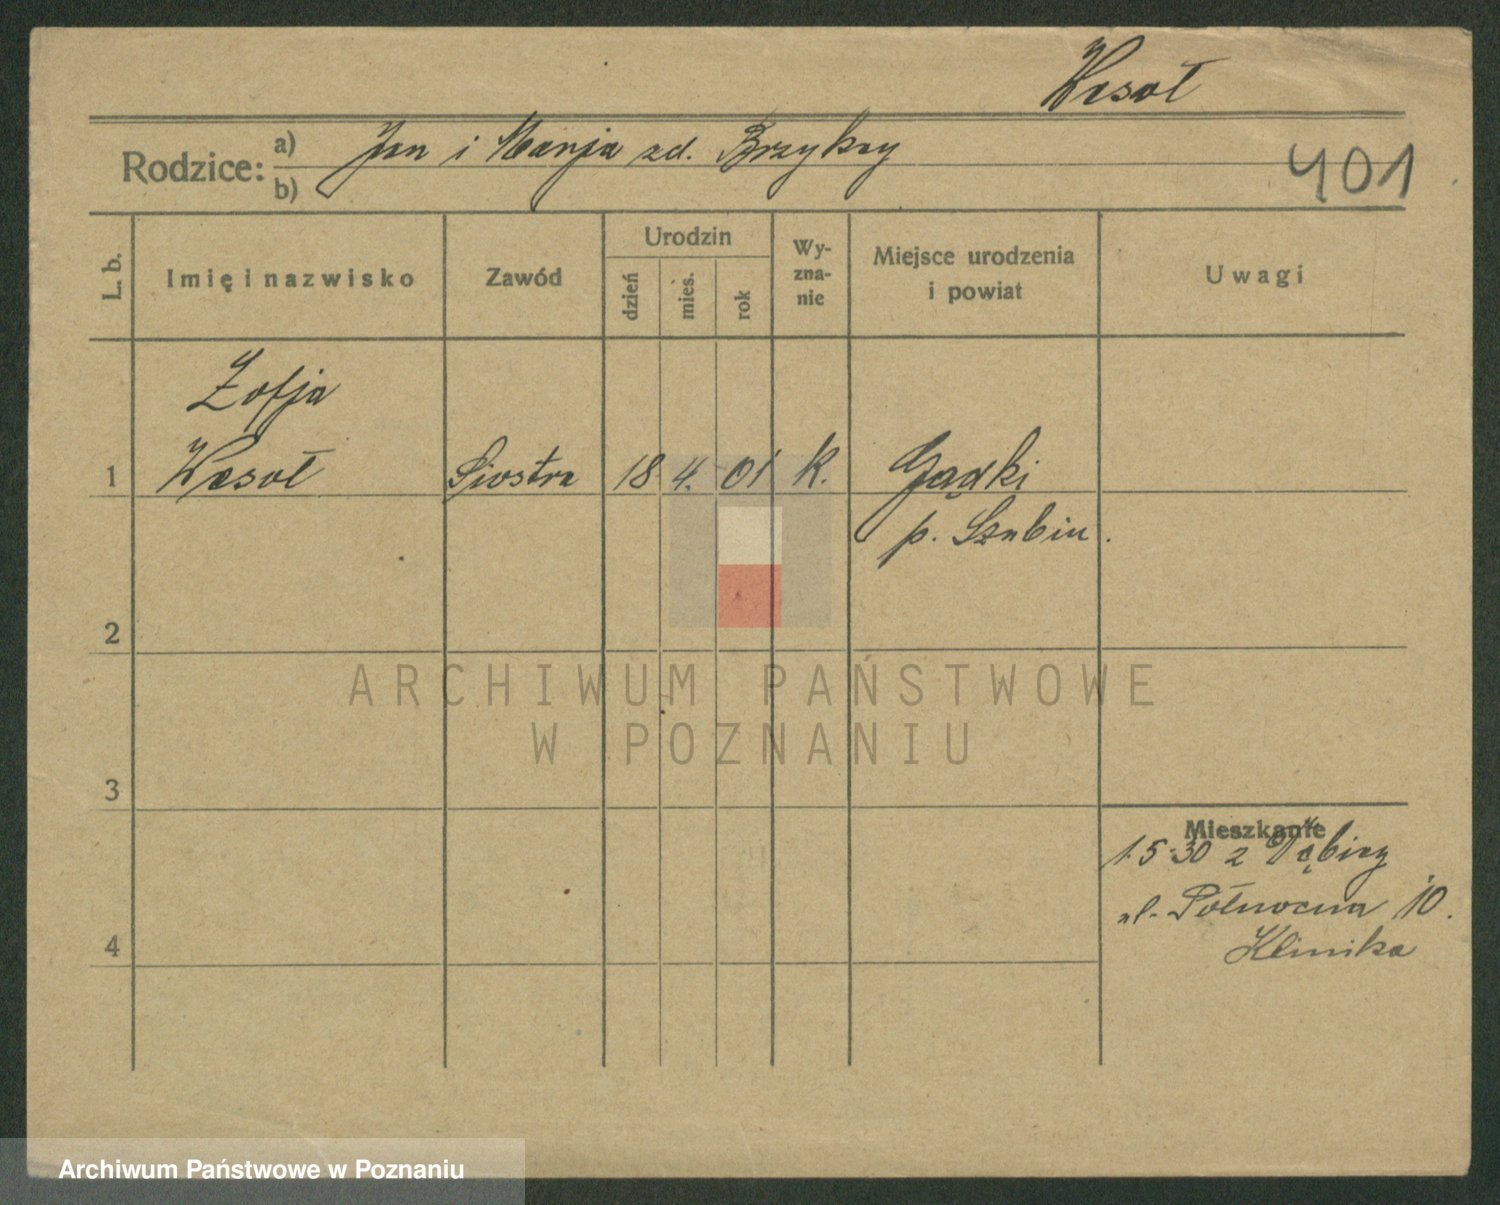 Wesoł
Rodzice: a) Jan i Marja zd. Brzykcy
b)
401
L. b.
Imię i nazwisko
Zawód
Urodzin
dzień
mies.
rok
Wy-
zna-
nie
Miejsce urodzenia
i powiat
Uwagi
Zofja
1 Wesoł Siostra 18 4. 01 k. Gądki
p. Szubin.
2
ARCHIWUM PAŃSTWOWE
W POZNANIU
3
Mieszkanie
1.5.30 z Dębicy
ul. Północna 10.
Klinika
4
Archiwum Państwowe w Poznaniu